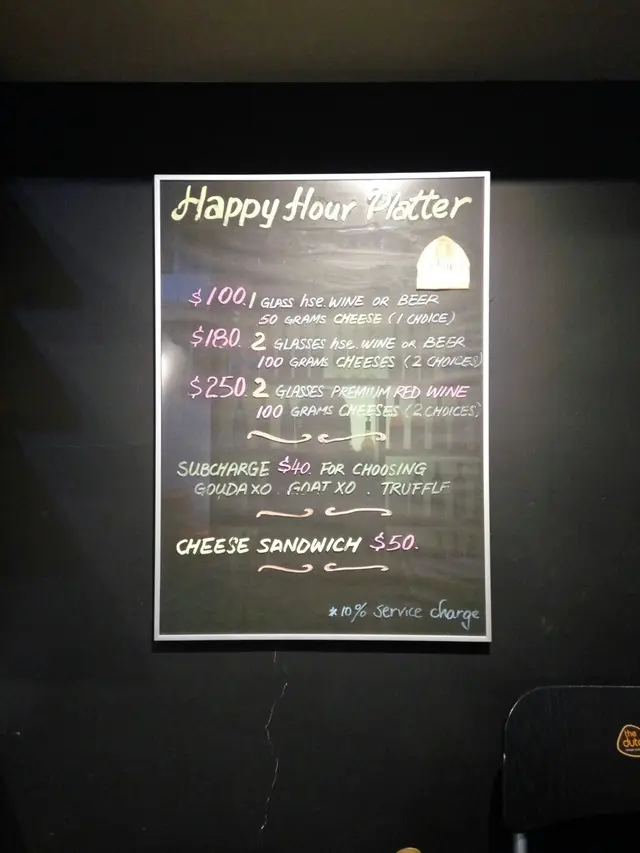 Happy Hour Platter
$100. 1 GLASS hse. WINE OR BEER
50 GRAMS CHEESE (1 CHOICE)
$180. 2 GLASSES hse. WINE OR BEER
100 GRAMS CHEESES (2 CHOICES)
$250. 2 GLASSES PREMIUM RED WINE
100 GRAMS CHEESES (2 CHOICES)
SUBCHARGE $40. FOR CHOOSING
GOUDA XO . GOAT XO . TRUFFLE
CHEESE SANDWICH $50.
*10% service charge
the